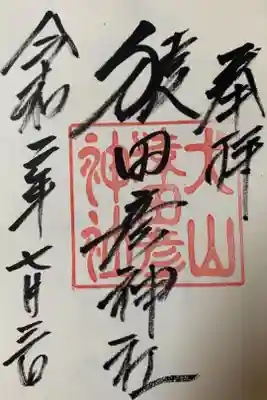 奉拝
犬山
猿田彦
神社
猿田彦神社
令和二年七月三日